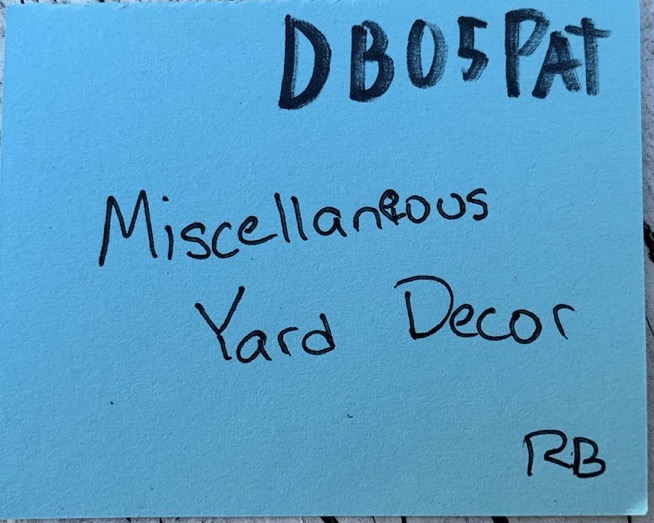 DB05PAT
Miscellaneous
Yard Decor
RB